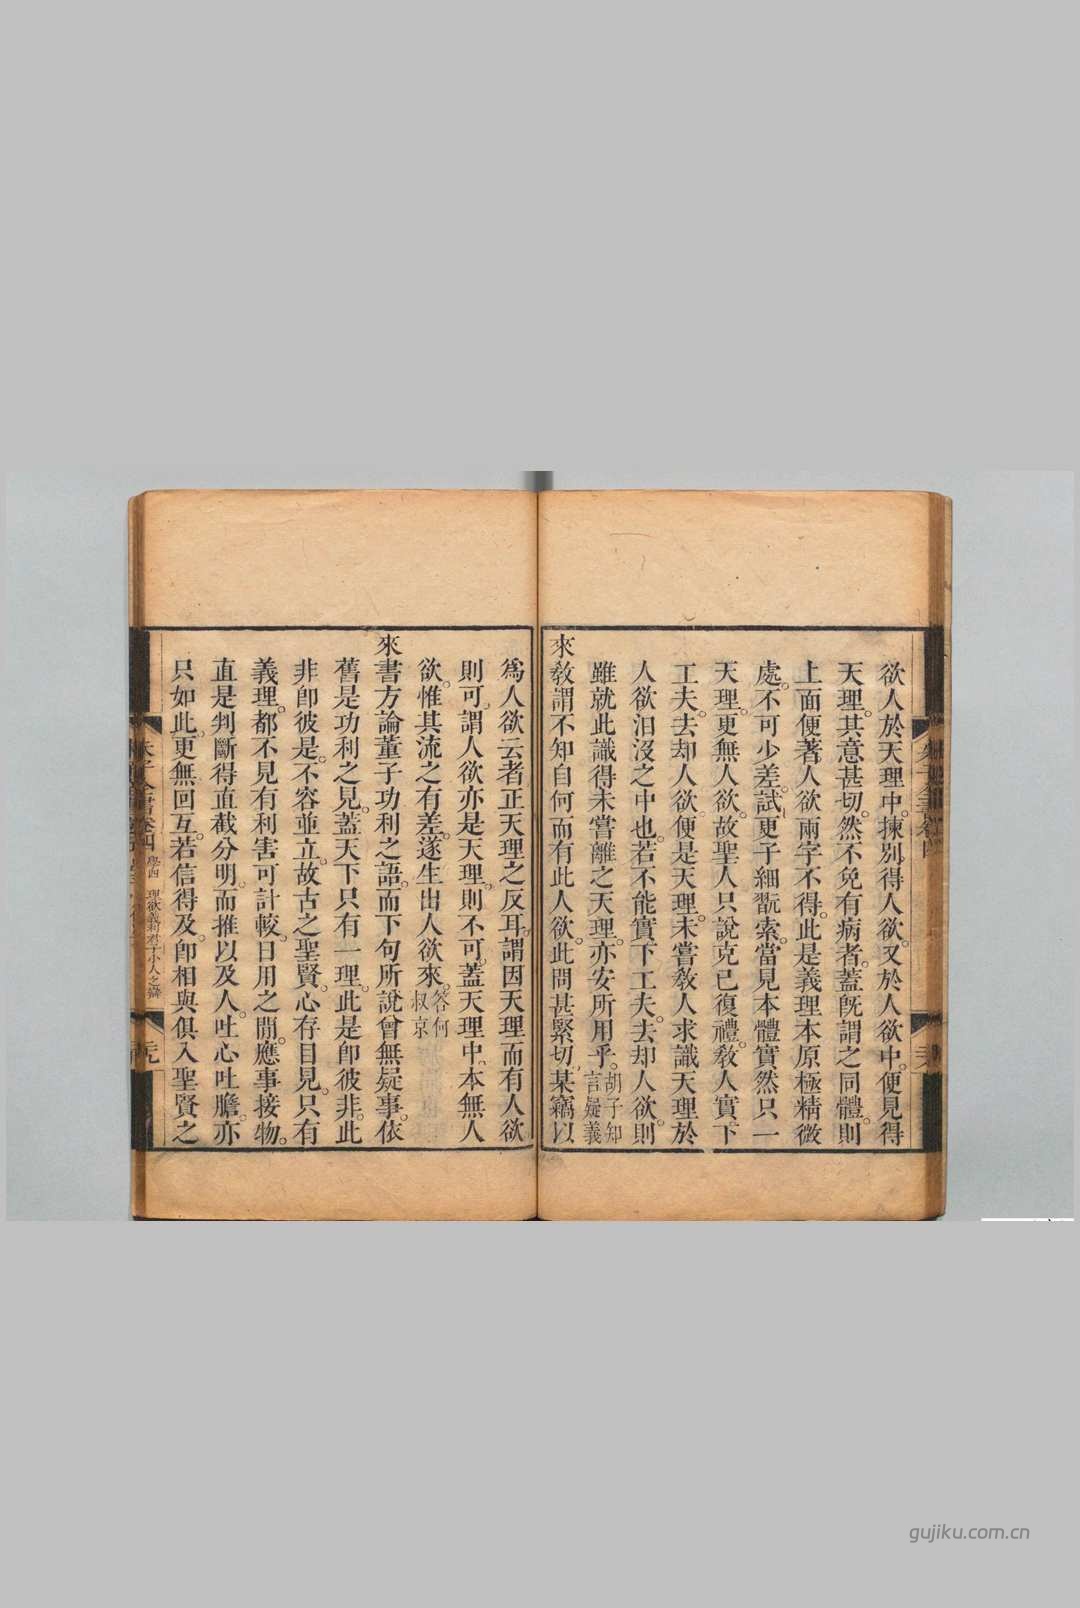 欲人於天理中。揀別得人欲。又於人欲中。便見得
天理。其意甚切。然不免有病者。蓋旣謂之同體。則
上面便著人欲兩字不得。此是義理本原極精微
處。不可少差。試更子細翫索。當見本體實然只一
天理。更無人欲。故聖人只說克己復禮。敎人實下
工夫。去却人欲。便是天理。未嘗敎人求識天理於
人欲汨沒之中也。若不能實下工夫。去却人欲。則
雖就此識得未嘗離之天理。亦安所用乎。胡子知言疑義
來敎謂不知自何而有此人欲。此問甚緊切。某竊以
爲人欲云者。正天理之反耳。謂因天理而有人欲
則可。謂人欲亦是天理。則不可。蓋天理中。本無人
欲。惟其流之有差。遂生出人欲來。答何叔京
來書方論董子功利之語。而下句所說曾無疑事。依
舊是功利之見。蓋天下只有一理。此是卽彼非。此
非卽彼是。不容並立。故古之聖賢。心存目見。只有
義理。都不見有利害可計較。日用之閒。應事接物。
直是判斷得直截分明。而推以及人。吐心吐膽。亦
只如此。更無回互。若信得及。卽相與俱入聖賢之
朱子全書卷四 學四 理欲義利君子小人之辨
gujiku.com.cn